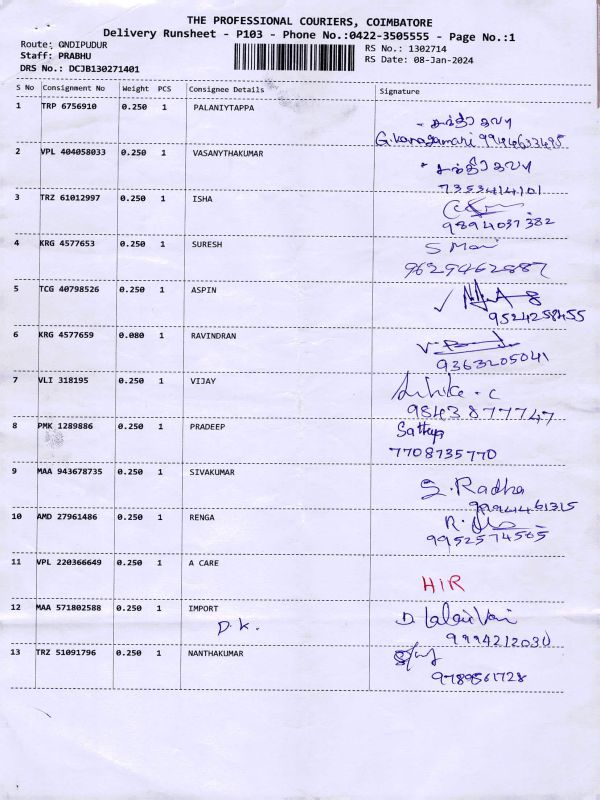 THE PROFESSIONAL COURIERS, COIMBATORE
Delivery Runsheet - P103 - Phone No.:0422-3505555 - Page No.:1
Route: GNDIPUDUR
RS No.: 1302714
Staff: PRABHU
RS Date: 08-Jan-2024
DRS No.: DCJB130271401
S No Consignment No Weight PCS Consignee Details Signature
1 TRP 6756910 0.250 1 PALANIYTAPPA
9944633495
2 VPL 404058033 0.250 1 VASANYTHAKUMAR
7353414101
3 TRZ 61012997 0.250 1 ISHA
9894037382
4 KRG 4577653 0.250 1 SURESH S Mani
9629462887
5 TCG 40798526 0.250 1 ASPIN
9524258455
6 KRG 4577659 0.080 1 RAVINDRAN
9363205041
7 VLI 318195 0.250 1 VIJAY
9843877747
8 PMK 1289886 0.250 1 PRADEEP Sathya
7708735770
9 MAA 943678735 0.250 1 SIVAKUMAR S. Radha
10 AMD 27961486 0.250 1 RENGA
9952574565
11 VPL 220366649 0.250 1 A CARE
HIR
12 MAA 571802588 0.250 1 IMPORT
D.K.
9994212030
13 TRZ 51091796 0.250 1 NANTHAKUMAR
9789561728